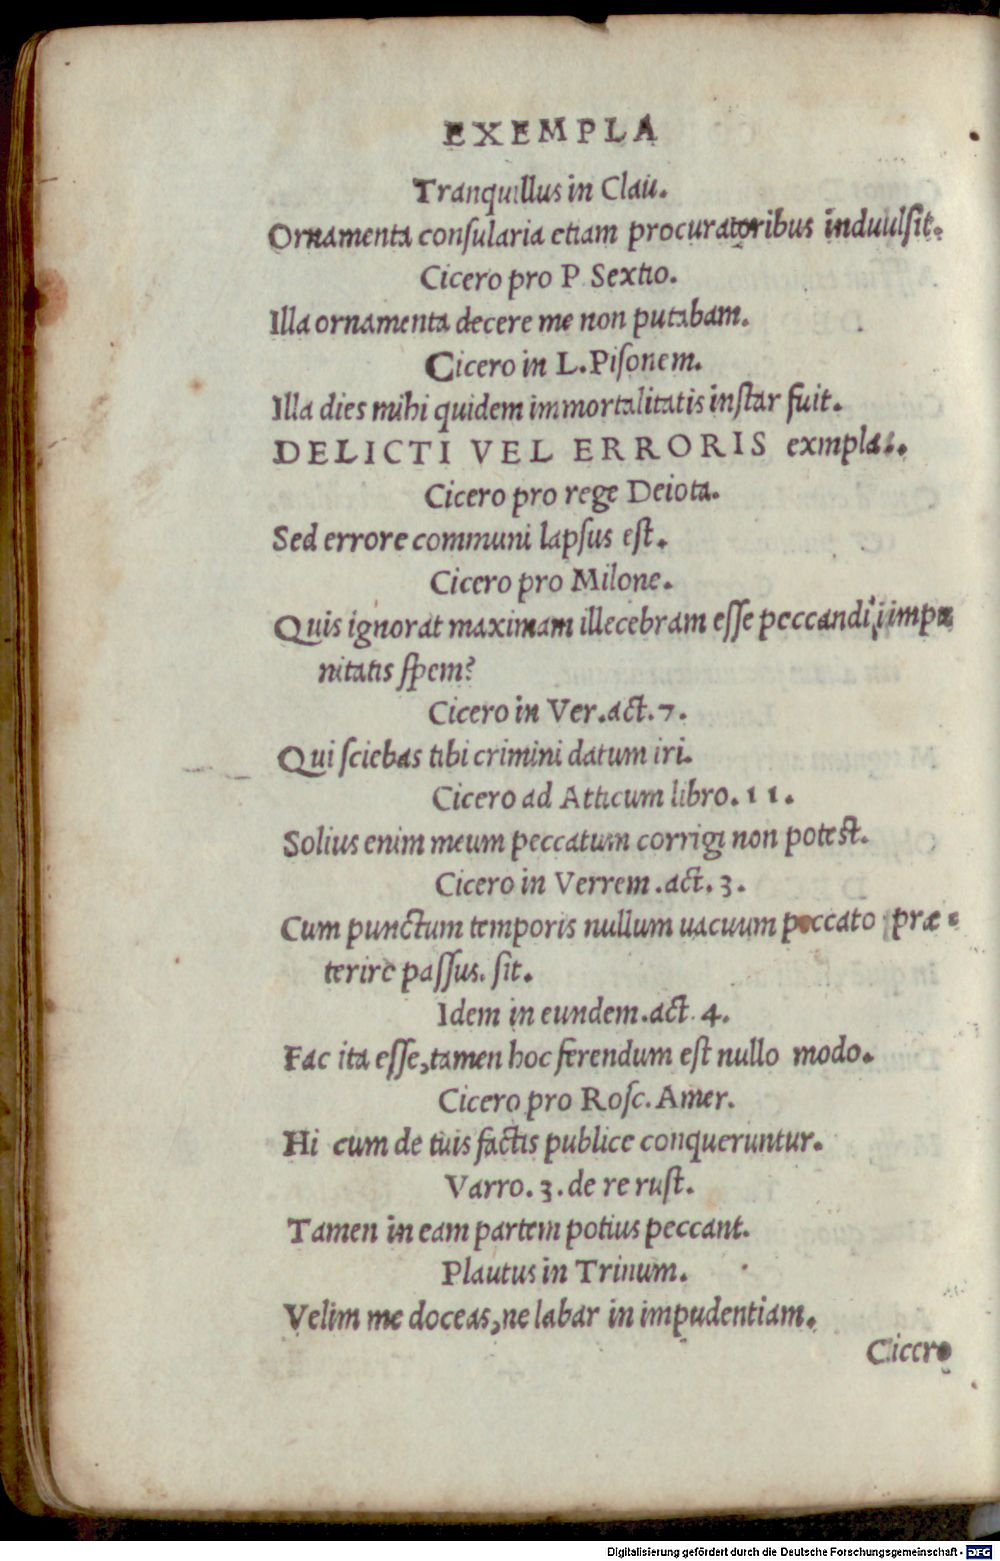 EXEMPLA
Tranquillus in Clau.
Ornamenta conſularia etiam procuratoribus induulſit.
Cicero pro P Sextio.
Illa ornamenta decere me non putabam.
Cicero in L. Piſonem.
Illa dies mihi quidem immortalitatis inſtar fuit.
DELICTI VEL ERRORIS exmpla..
Cicero pro rege Deiota.
Sed errore communi lapſus eſt.
Cicero pro Milone.
Quis ignorat maximam illecebram eſſe peccandi, impu
nitatis ſpem?
Cicero in Ver. act. 7.
Qui ſciebas tibi crimini datum iri.
Cicero ad Atticum libro. 11.
Solius enim meum peccatum corrigi non poteſt.
Cicero in Verrem. act. 3.
Cum punctum temporis nullum uacuum peccato præ-
terire paſſus. ſit.
Idem in eundem. act. 4.
Fac ita eſſe, tamen hoc ferendum eſt nullo modo.
Cicero pro Roſc. Amer.
Hi cum de tuis factis publice conqueruntur.
Varro. 3. de re ruſt.
Tamen in eam partem potius peccant.
Plautus in Trinum.
Velim me doceas, ne labar in impudentiam.
Cicero
Digitalisierung gefördert durch die Deutsche Forschungsgemeinschaft - DFG